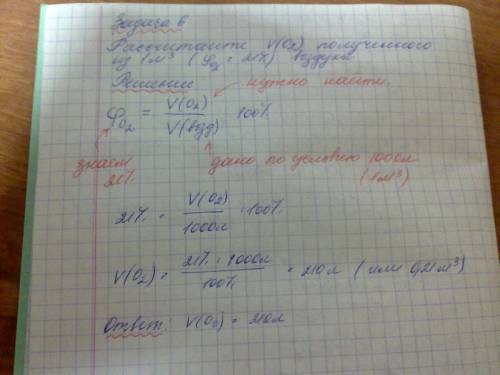 Задача 6
Рассчитайте V(O₂) полученного
из 1 м³ (φO₂ = 21%) воздуха
Решение
нужно найти.
φO₂ = V(O₂) / V(возд) · 100%
знаем 21%
дано по условию 1000л (1м³)
21% = V(O₂) / 1000л · 100%
V(O₂) = 21% · 1000л / 100% = 210л (или 0,21м³)
Ответ. V(O₂) = 210л